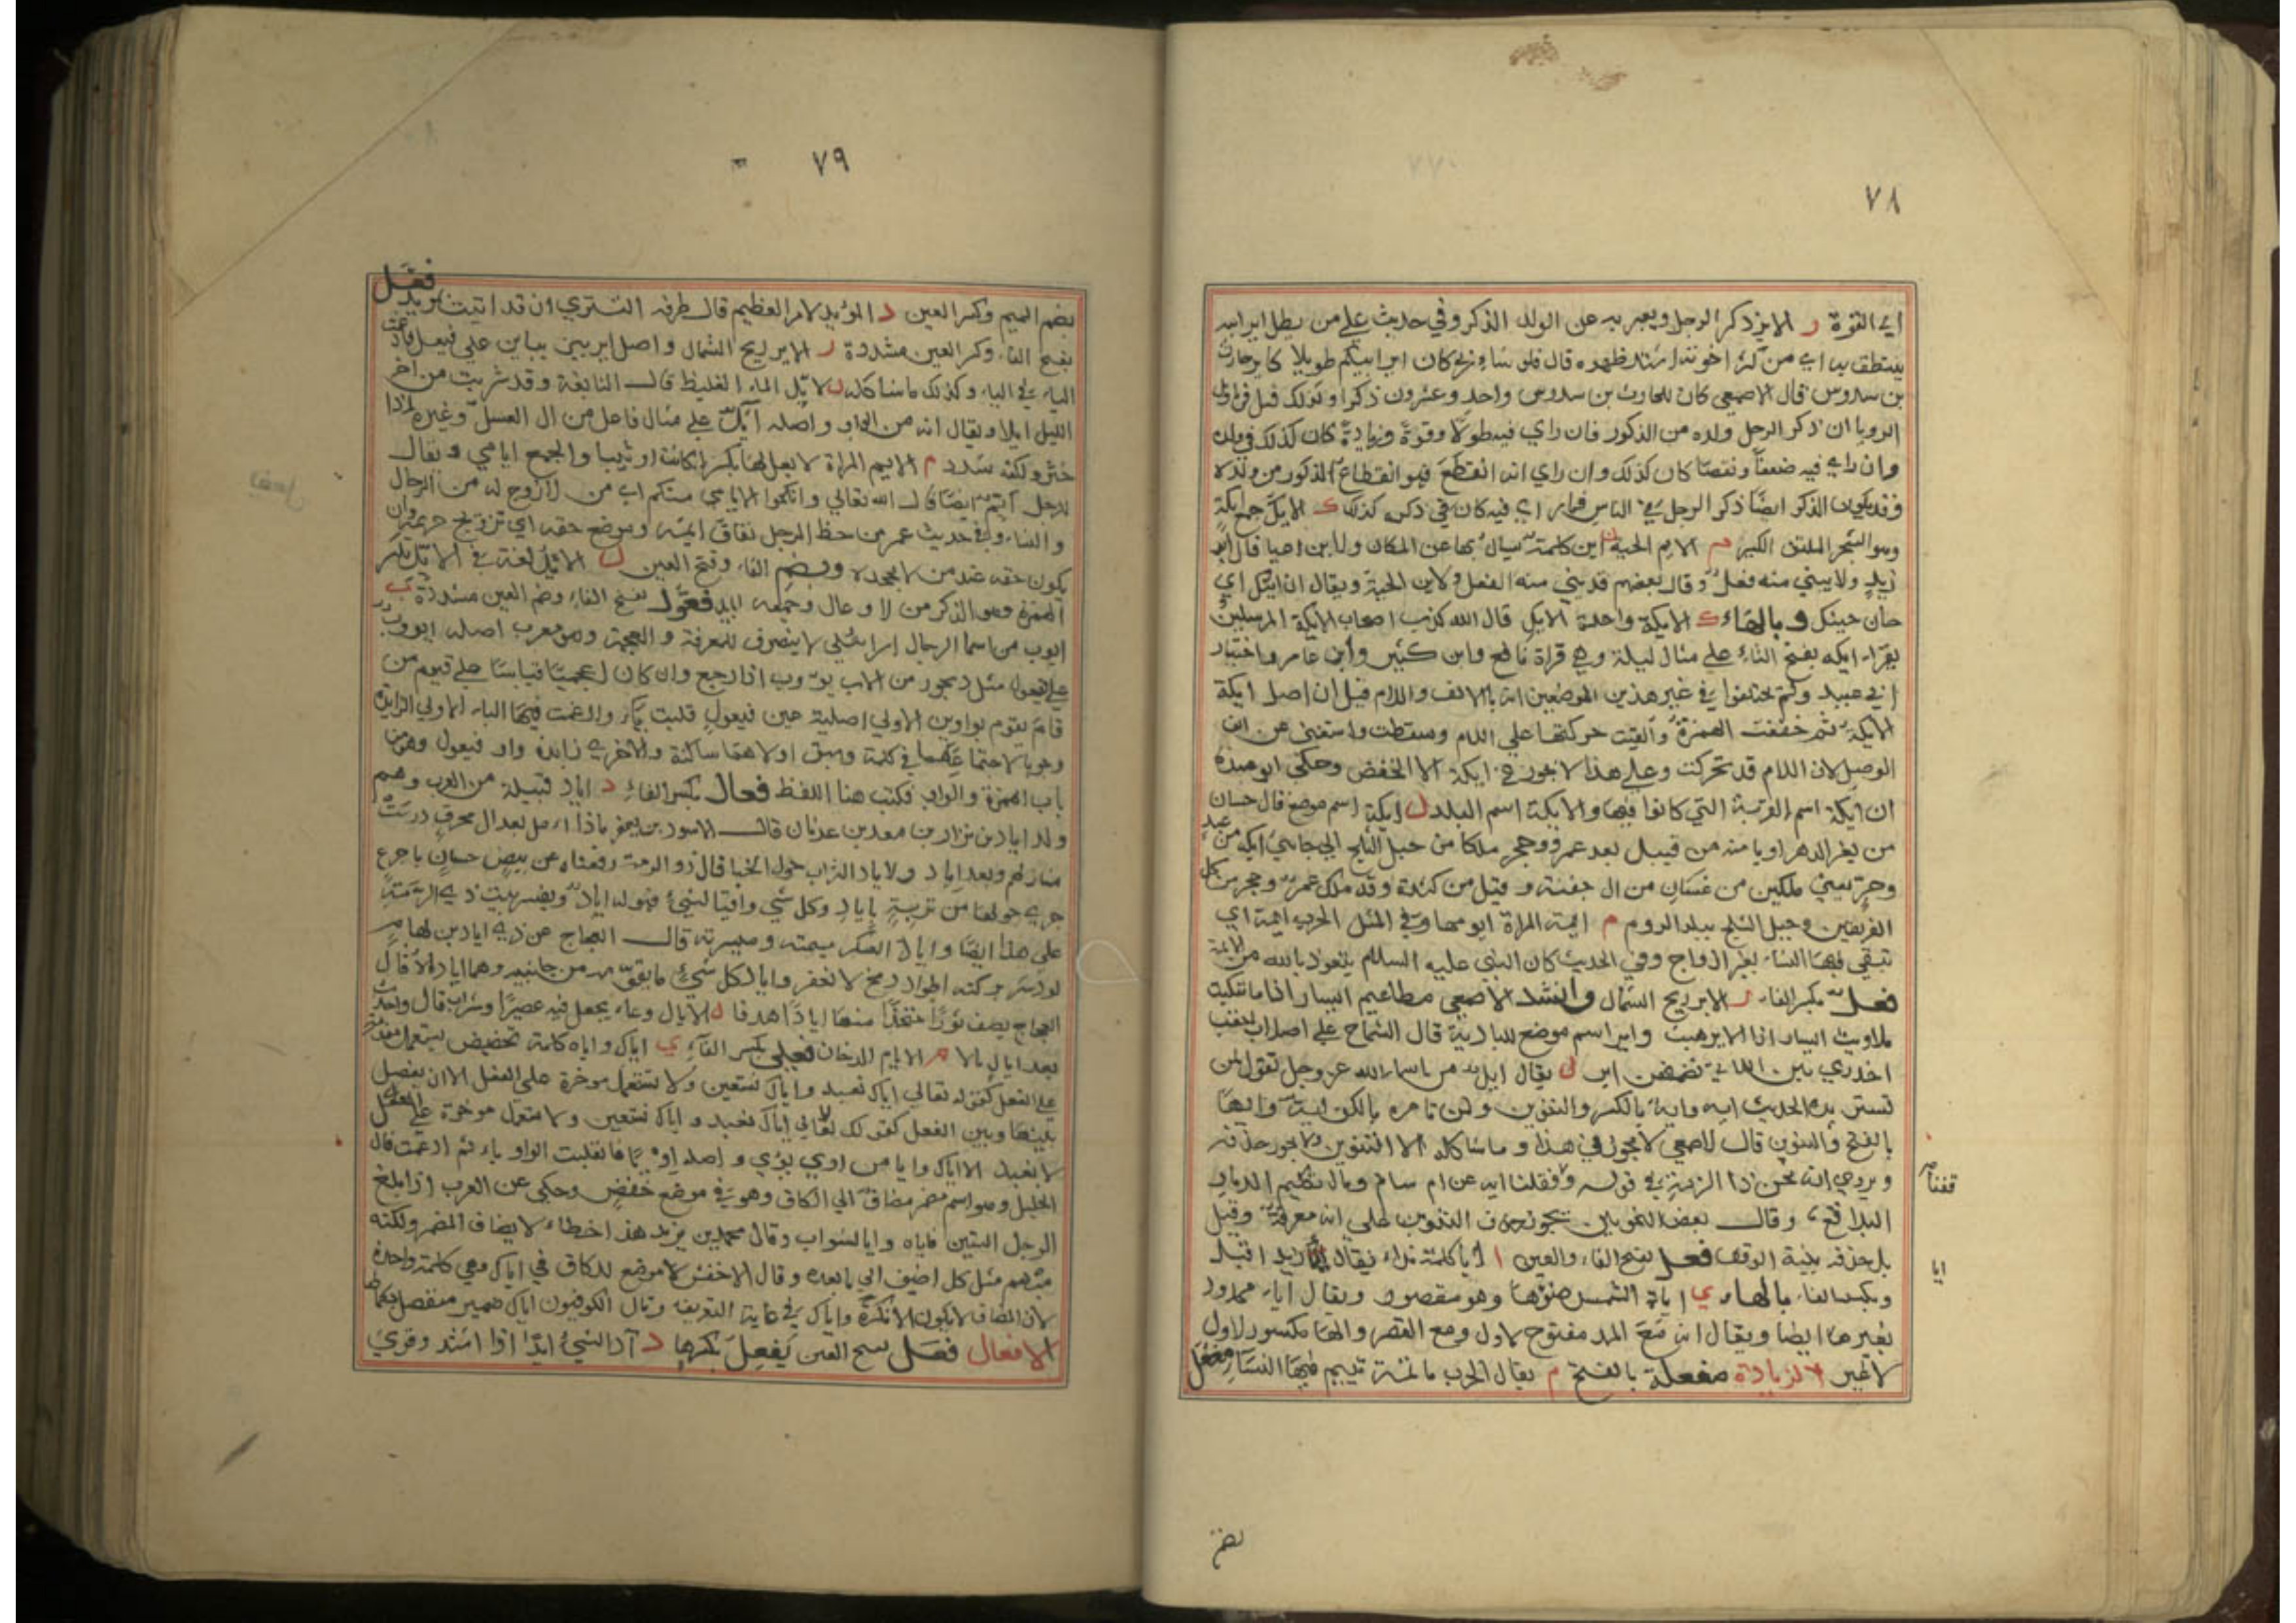 ٧٨
اي القوة ر الاير ذكر الرجل ويعبر به عن الولد الذكر وفي حديث علي من يطل اير ابيه
ينتطق به اي من كثر اخوته اشتد ظهره قال فلو شا ربي كان اير ابيكم طويلا كاير حارث
بن سدوس قال الاصمعي كان للحارث بن سدوس واحد وعشرون ذكرا ولذلك قيل في تاويل
الرويا ان ذكر الرجل ولده من الذكور فان راي فيه طولا وقوة وزيادة كان كذلك في ولده
وان راي فيه ضعفا ونقصا كان كذلك وان راي انه انقطع فهو انقطاع الذكور من ولده
وقد يكون الذكر ايضا ذكر الرجل في الناس فما راي فيه كان في ذكره كذلك ك الايك جمع ايكة
وهو الشجر الملتف الكبير م الايم الحية ن اين كلمة سيال بها عن المكان ولاين احيا قال ابو
زيد ولا يبني منه فعل وقال بعضهم قد بني منه الفعل ولاين الحية ويقال ان اينك اي
حان حينك وبالهاء ك الايكة واحدة الايك قال الله كذب اصحاب الايكة المرسلين
يقراء ايكه بفتح التاء علي مثال ليلة وهي قراة نافع وابن كثير وابن عامر واختيار
ابي عبيد ولم يختلفوا في غير هذين الموضعين انه بالالف واللام قيل ان اصل ايكة
الايكة ثم خففت الهمزة والقيت حركتها علي اللام وسقطت واستغني عن الف
الوصل لان اللام قد تحركت وعلي هذا لا يجوز في ايكة الا الخفض وحكي ابو عبيدة
ان ايكة اسم القرية التي كانوا فيها والايكة اسم البلد ل ايلة اسم موضع قال حسان
من يغر الدهر او يامنه من قبيل بعد عمرو وحجر ملكا من جبل الثلج الي جانبي ايلة من عبد
وحر يعني ملكين من غسان من ال جفنة وقيل من كندة وقد ملك عمرو وحجر من كل
الفريقين وجبل الثلج ببلد الروم م ايمة المراة ايومها وفي المثل الحرب ايمة اي
تبقي فيها النساء بغير ازواج وفي الحديث كان النبي عليه السلام يتعوذ بالله من الايمة
فعل بكسر الفاء ر الاير ريح الشمال وانشد الاصمعي مطاعيم ايسار اذا ما تنكبت
ملاويث ايسار اذا الاير هبت واير اسم موضع للبادية قال الشماخ علي اصلاب احقب
اخدري من اللاتي تضمنهن اير ل يقال ايل من اسماء الله عز وجل تقول لمن
تستزيده الحديث ايه وايه بالكسر والتنوين ولمن تامره بالكف ايه وايها
بالفتح والتنوين قال الاصمعي لا يجوز في هذا وما شاكله الا التنوين ولا يجوز حذفه
ويروي انه لحن ذا الرمة في قوله وقفنا فقلنا ايه عن ام سالم وما بال تكليم الديار
البلاقع وقال بعض النحويين يجوز حذف التنوين علي انه معرفة وقيل
بل حذف بنية الوقف فعل بفتح الفاء والعين ا ايا كلمة نداء يقال ايا زيد اقبل
وبكسر الفاء بالهاء ي اياة الشمس ضوءها وهو مقصور ويقال اياء ممدود
بغير ها ايضا ويقال انه مع المد مفتوح الاول ومع القصر والها مكسور الاول
لا غير الزيادة مفعلة بالفتح م يقال الحرب مايمة تييم فيها النساء مفعل
قفنا
ايا
بضم
٧٩
بضم الميم وكسر العين د المؤيد الامر العظيم قال طرفه الست تري ان قد اتيت بمؤيد فيعل
بفتح الفاء وكسر العين مشددة ر الاير ريح الشمال واصل اير بيين علي فيعل فادغمت
الياء في الياء وكذلك ما شاكله ل الايل الماء الغليظ قال النابغة وقد شربت من اخر
الليل ايلا ويقال انه من الواو واصله آيل علي مثال فاعل من ال العسل وغيره اذا
خثر ولكنه شدد م الايم المراة لا بعل لها بكرا كانت او ثيبا والجمع ايامي ويقال
للرجل ايم ايضا قال الله تعالي وانكحوا الايامي منكم اي من لا زوج له من الرجال
والنساء وفي حديث عمر من حظ الرجل نفاق ايمه وموضع حقه اي تزويج حريمه وان
يكون حقه عند من لا يجحده وبضم الفاء وفتح العين ل الايل لغة في الايل بكسر
الهمزة وهو الذكر من الاوعال وجمعه ايل فعول بفتح الفاء وضم العين مشددة ب
ايوب من اسما الرجال اسرائيلي لا ينصرف للمعرفة والعجمة وهو معرب اصله ايووب
علي فيعول مثل ديجور من الاب يؤوب اذا رجع وان كان اعجميا قياسا علي قيوم من
قام يقوم بواوين الاولي اصلية عين فيعول قلبت ياء وادغمت فيها الياء الاولي الزايدة
وجوبا لاجتماعهما في كلمة وسبق اولاهما ساكنة والاخري زايدة واو فيعول وهو من
باب الهمزة والواو فكتب هنا اللفظ فعال بكسر الفاء د اياد قبيلة من العرب وهم
ولد اياد بن نزار بن معد بن عدنان قال الاسود بن يعفر ماذا اءمل بعد ال محرق درست
منازلهم وبعد اياد والاياد التراب حول الخبا قال ذو الرمة دفعناه عن بيض حسان باجرع
جري حولها من تربة باياد وكل شي واقيا لشيء فهو له اياد ويفسر بيت ذي الرمة
علي هذا ايضا واياد العسكر ميمنته وميسرته قال العجاج عن ذي ايادين لهام
لو دسر بركنه اطواد دمخ لانقعر واياد كل شيء ما يقوي به من جانبيه وهما اياداه قال
العجاج يصف ثورا متخذا منها ايادا هدفا ل الايال وعاء يجعل فيه عصير او شراب قال ولحدث
بعد ايال الا م الايام الدخان فعلي بكسر الفاء ي اياك واياه كلمة تخصيص يستعمل مقدمة
علي الفعل كقوله تعالي اياك نعبد واياك نستعين ولا تستعمل موخرة علي الفعل الا ان يفصل
بينها وبين الفعل كقولك تعالي اياك نعبد واياك نستعين ولا تستعمل موخرة علي الفعل
لا نعبد الا اياك وايا من اوي يؤوي واصله اويا فانقلبت الواو ياء ثم ادغمت قال
الخليل وهو اسم مضمر مضاف الي الكاف وهو في موضع خفض وحكي عن العرب اذا بلغ
الرجل الستين فاياه وايا الشواب وقال محمد بن يزيد هذا خطاء لا يضاف المضمر ولكنه
مبهم مثل كل اضيف الي ما بعده وقال الاخفش لا موضع للكاف في اياك وهي كلمة واحدة
لان المضاف لا يكون الا نكرة واياك في غاية التعريف وقال الكوفيون اياك ضمير منفصل بكمالها
الافعال فعل بفتح العين يفعل بكسرها د آد الشيء ايدا اذا اشتد وقوي